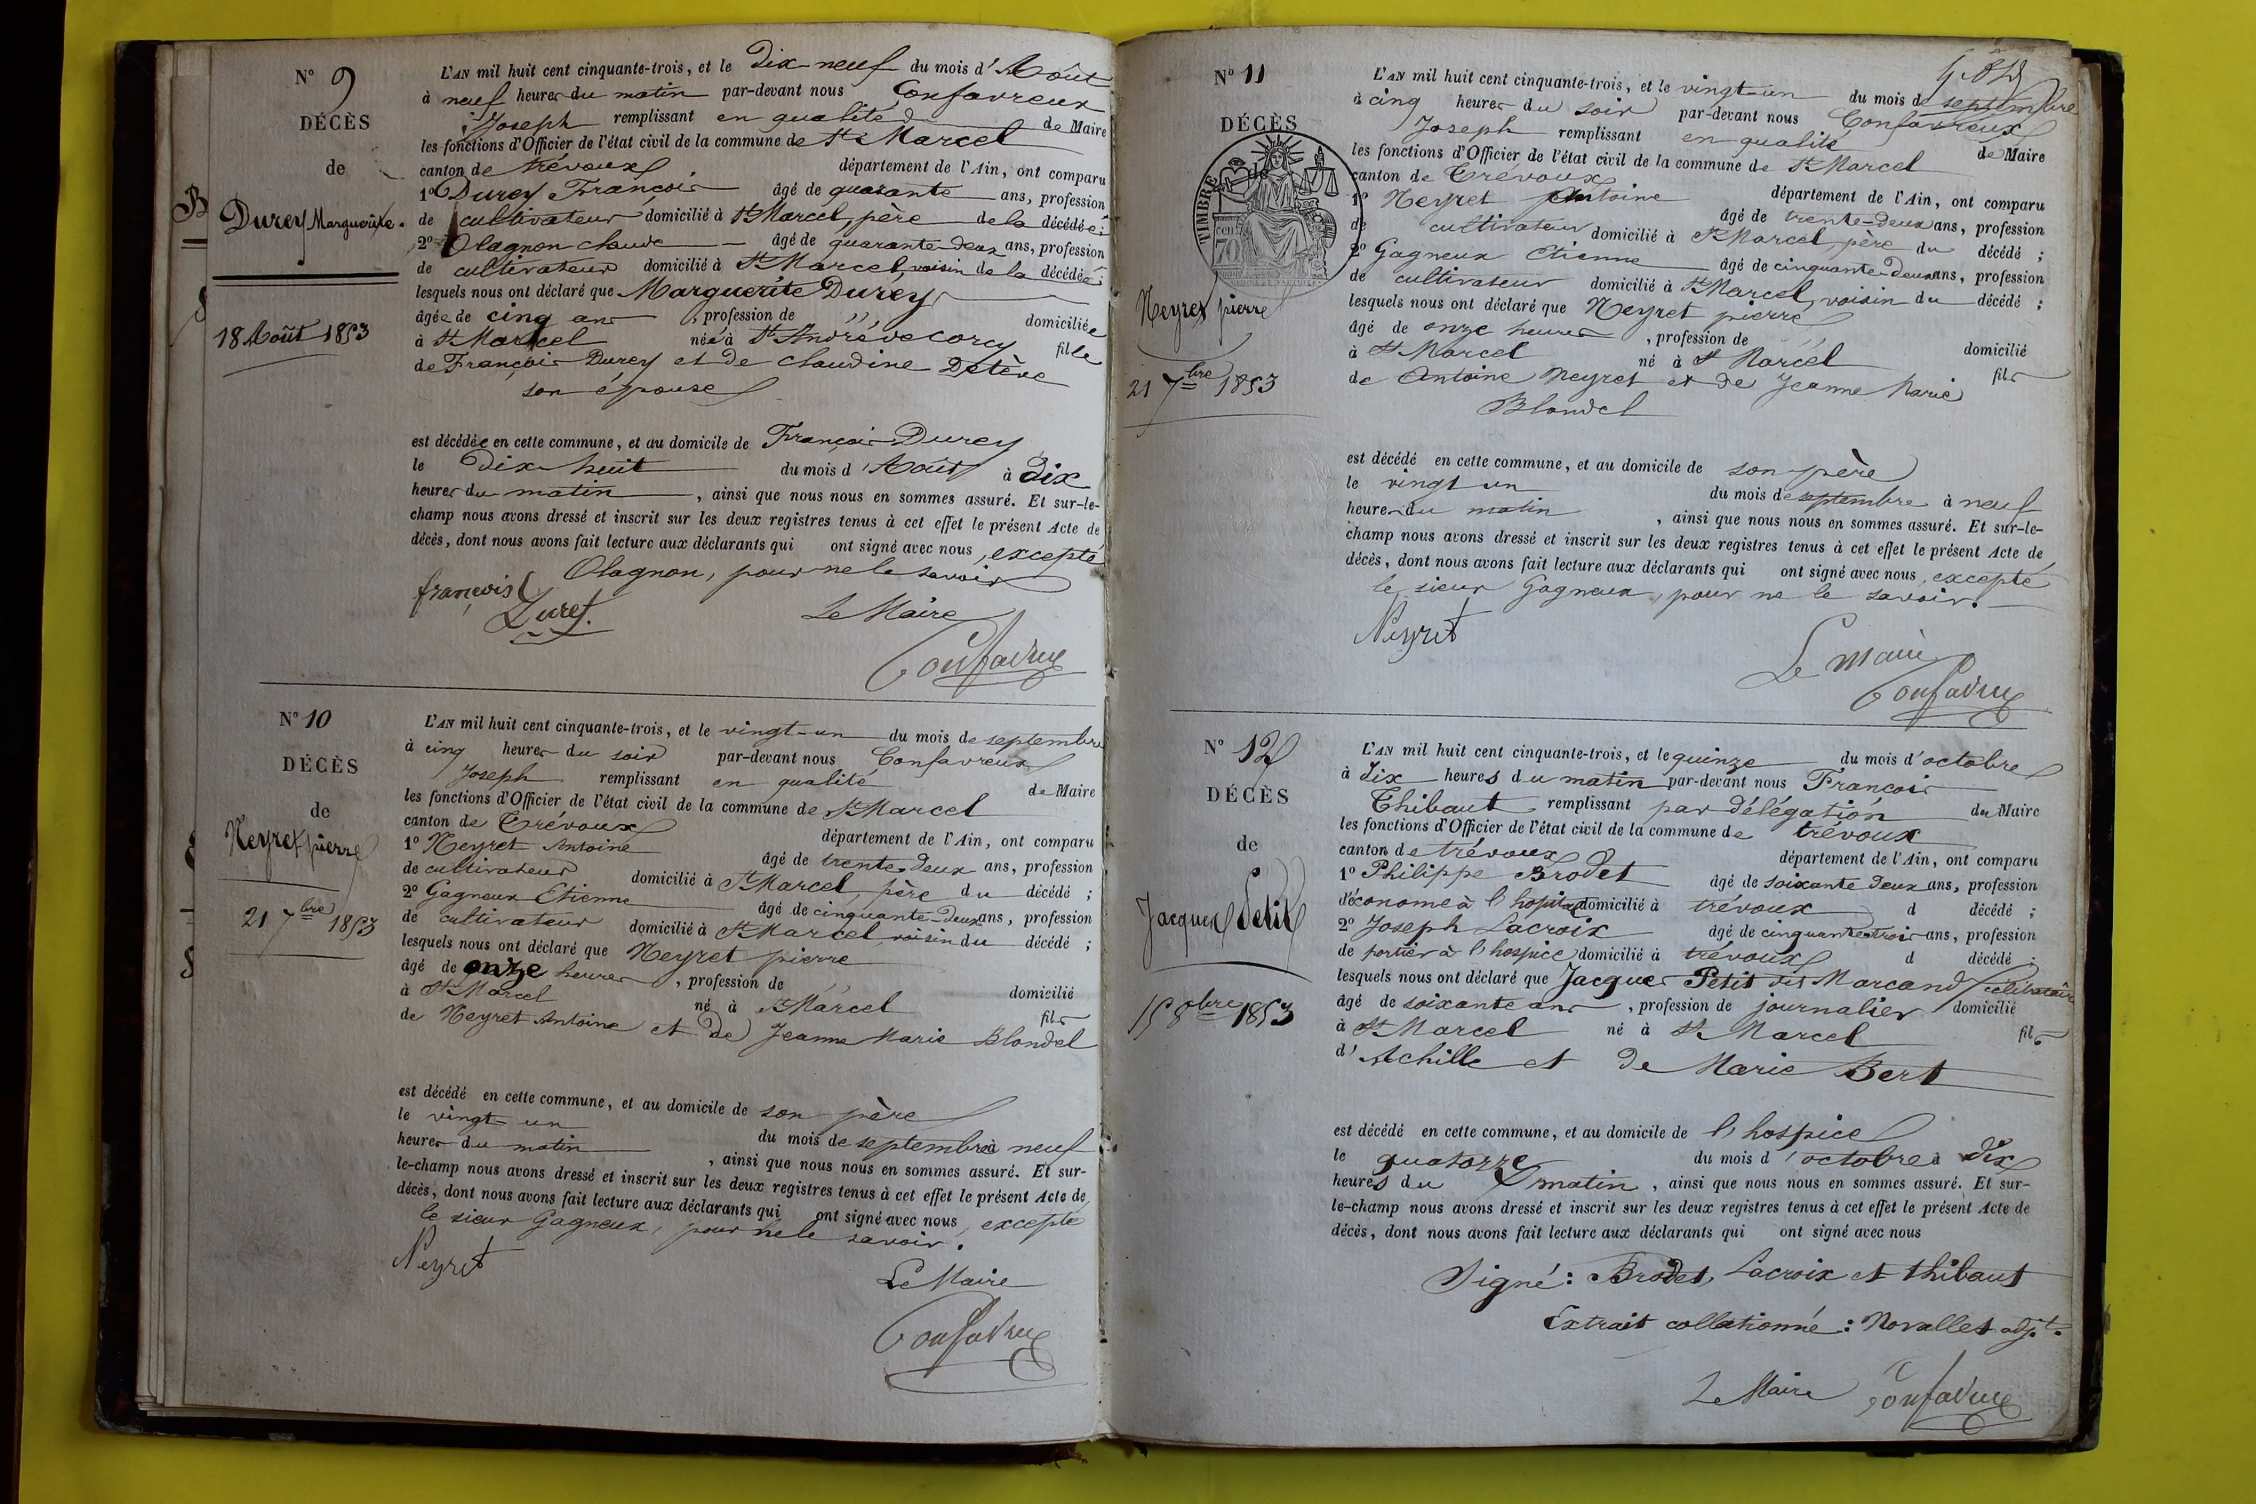 N° 9
DÉCÈS
de
Durey Marguerite.
18 Août 1853
L'AN mil huit cent cinquante-trois, et le dix neuf du mois d'Août
à neuf heures du matin par-devant nous Confavreux
Joseph remplissant en qualité de Maire
les fonctions d'Officier de l'état civil de la commune de St Marcel
canton de trévoux département de l'Ain, ont comparu
1° Durey François âgé de quarante ans, profession
de cultivateur domicilié à St Marcel, père de la décédée;
2° Olagnon claude âgé de quarante-deux ans, profession
de cultivateur domicilié à St Marcel, voisin de la décédée;
lesquels nous ont déclaré que Marguerite Durey
âgée de cinq ans, profession de domiciliée
à St Marcel née à St André de Corcy fille
de François Durey et de claudine
son épouse
est décédée en cette commune, et au domicile de François Durey
le dix-huit du mois d'Août à dix
heures du matin, ainsi que nous nous en sommes assuré. Et sur-le-
champ nous avons dressé et inscrit sur les deux registres tenus à cet effet le présent Acte de
décès, dont nous avons fait lecture aux déclarants qui ont signé avec nous, excepté
Olagnon, pour ne le savoir
françois
Durey.
Le Maire
Confavreux
N° 10
DÉCÈS
de
Neyret pierre
21 7bre 1853
L'AN mil huit cent cinquante-trois, et le vingt-un du mois de septembre
à cinq heures du soir par-devant nous Confavreux
Joseph remplissant en qualité de Maire
les fonctions d'Officier de l'état civil de la commune de St Marcel
canton de Trévoux département de l'Ain, ont comparu
1° Neyret Antoine âgé de trente-deux ans, profession
de cultivateur domicilié à St Marcel, père du décédé;
2° Gagneux Etienne âgé de cinquante-deux ans, profession
de cultivateur domicilié à St Marcel, voisin du décédé;
lesquels nous ont déclaré que Neyret pierre
âgé de onze heures, profession de domicilié
à St Marcel né à St Marcel fils
de Neyret Antoine et de Jeanne Marie Blondel
est décédé en cette commune, et au domicile de son père
le vingt-un du mois de septembre à neuf
heures du matin, ainsi que nous nous en sommes assuré. Et sur-
le-champ nous avons dressé et inscrit sur les deux registres tenus à cet effet le présent Acte de
décès, dont nous avons fait lecture aux déclarants qui ont signé avec nous, excepté
le sieur Gagneux, pour ne le savoir.
Neyret
Le Maire
Confavreux
N° 11
DÉCÈS
TIMBRE
70
Neyret pierre
21 7bre 1853
L'AN mil huit cent cinquante-trois, et le vingt-un du mois de septembre
à cinq heures du soir par-devant nous Confavreux
Joseph remplissant en qualité de Maire
les fonctions d'Officier de l'état civil de la commune de St Marcel
canton de Trévoux département de l'Ain, ont comparu
1° Neyret Antoine âgé de trente-deux ans, profession
de cultivateur domicilié à St Marcel, père du décédé;
2° Gagneux Etienne âgé de cinquante-deux ans, profession
de cultivateur domicilié à St Marcel, voisin du décédé;
lesquels nous ont déclaré que Neyret pierre
âgé de onze heures, profession de domicilié
à St Marcel né à St Marcel fils
de Antoine Neyret et de Jeanne Marie
Blondel
est décédé en cette commune, et au domicile de son père
le vingt un du mois de septembre à neuf
heures du matin, ainsi que nous nous en sommes assuré. Et sur-le-
champ nous avons dressé et inscrit sur les deux registres tenus à cet effet le présent Acte de
décès, dont nous avons fait lecture aux déclarants qui ont signé avec nous, excepté
le sieur Gagneux, pour ne le savoir.
Neyret
Le maire
Confavreux
N° 12
DÉCÈS
de
Jacques Petit
15 8obre 1853
L'AN mil huit cent cinquante-trois, et le quinze du mois d'octobre
à dix heures du matin par-devant nous François
Thibaut remplissant par délégation du Maire
les fonctions d'Officier de l'état civil de la commune de trévoux
canton de trévoux département de l'Ain, ont comparu
1° Philippe Brodet âgé de soixante deux ans, profession
d'économe à l'hopital domicilié à trévoux d décédé;
2° Joseph Lacroix âgé de cinquante-trois ans, profession
de portier à l'hospice domicilié à trévoux d décédé;
lesquels nous ont déclaré que Jacques Petit dit Marcand, célibataire
âgé de soixante ans, profession de journalier domicilié
à St Marcel né à St Marcel fils
d'Achille et de Marie Bert
est décédé en cette commune, et au domicile de l'hospice
le quatorze du mois d'octobre à dix
heures du matin, ainsi que nous nous en sommes assuré. Et sur-
le-champ nous avons dressé et inscrit sur les deux registres tenus à cet effet le présent Acte de
décès, dont nous avons fait lecture aux déclarants qui ont signé avec nous
Signé: Brodet, Lacroix et thibaut
Extrait collationné: Novallet adjt.
Le Maire Confavreux